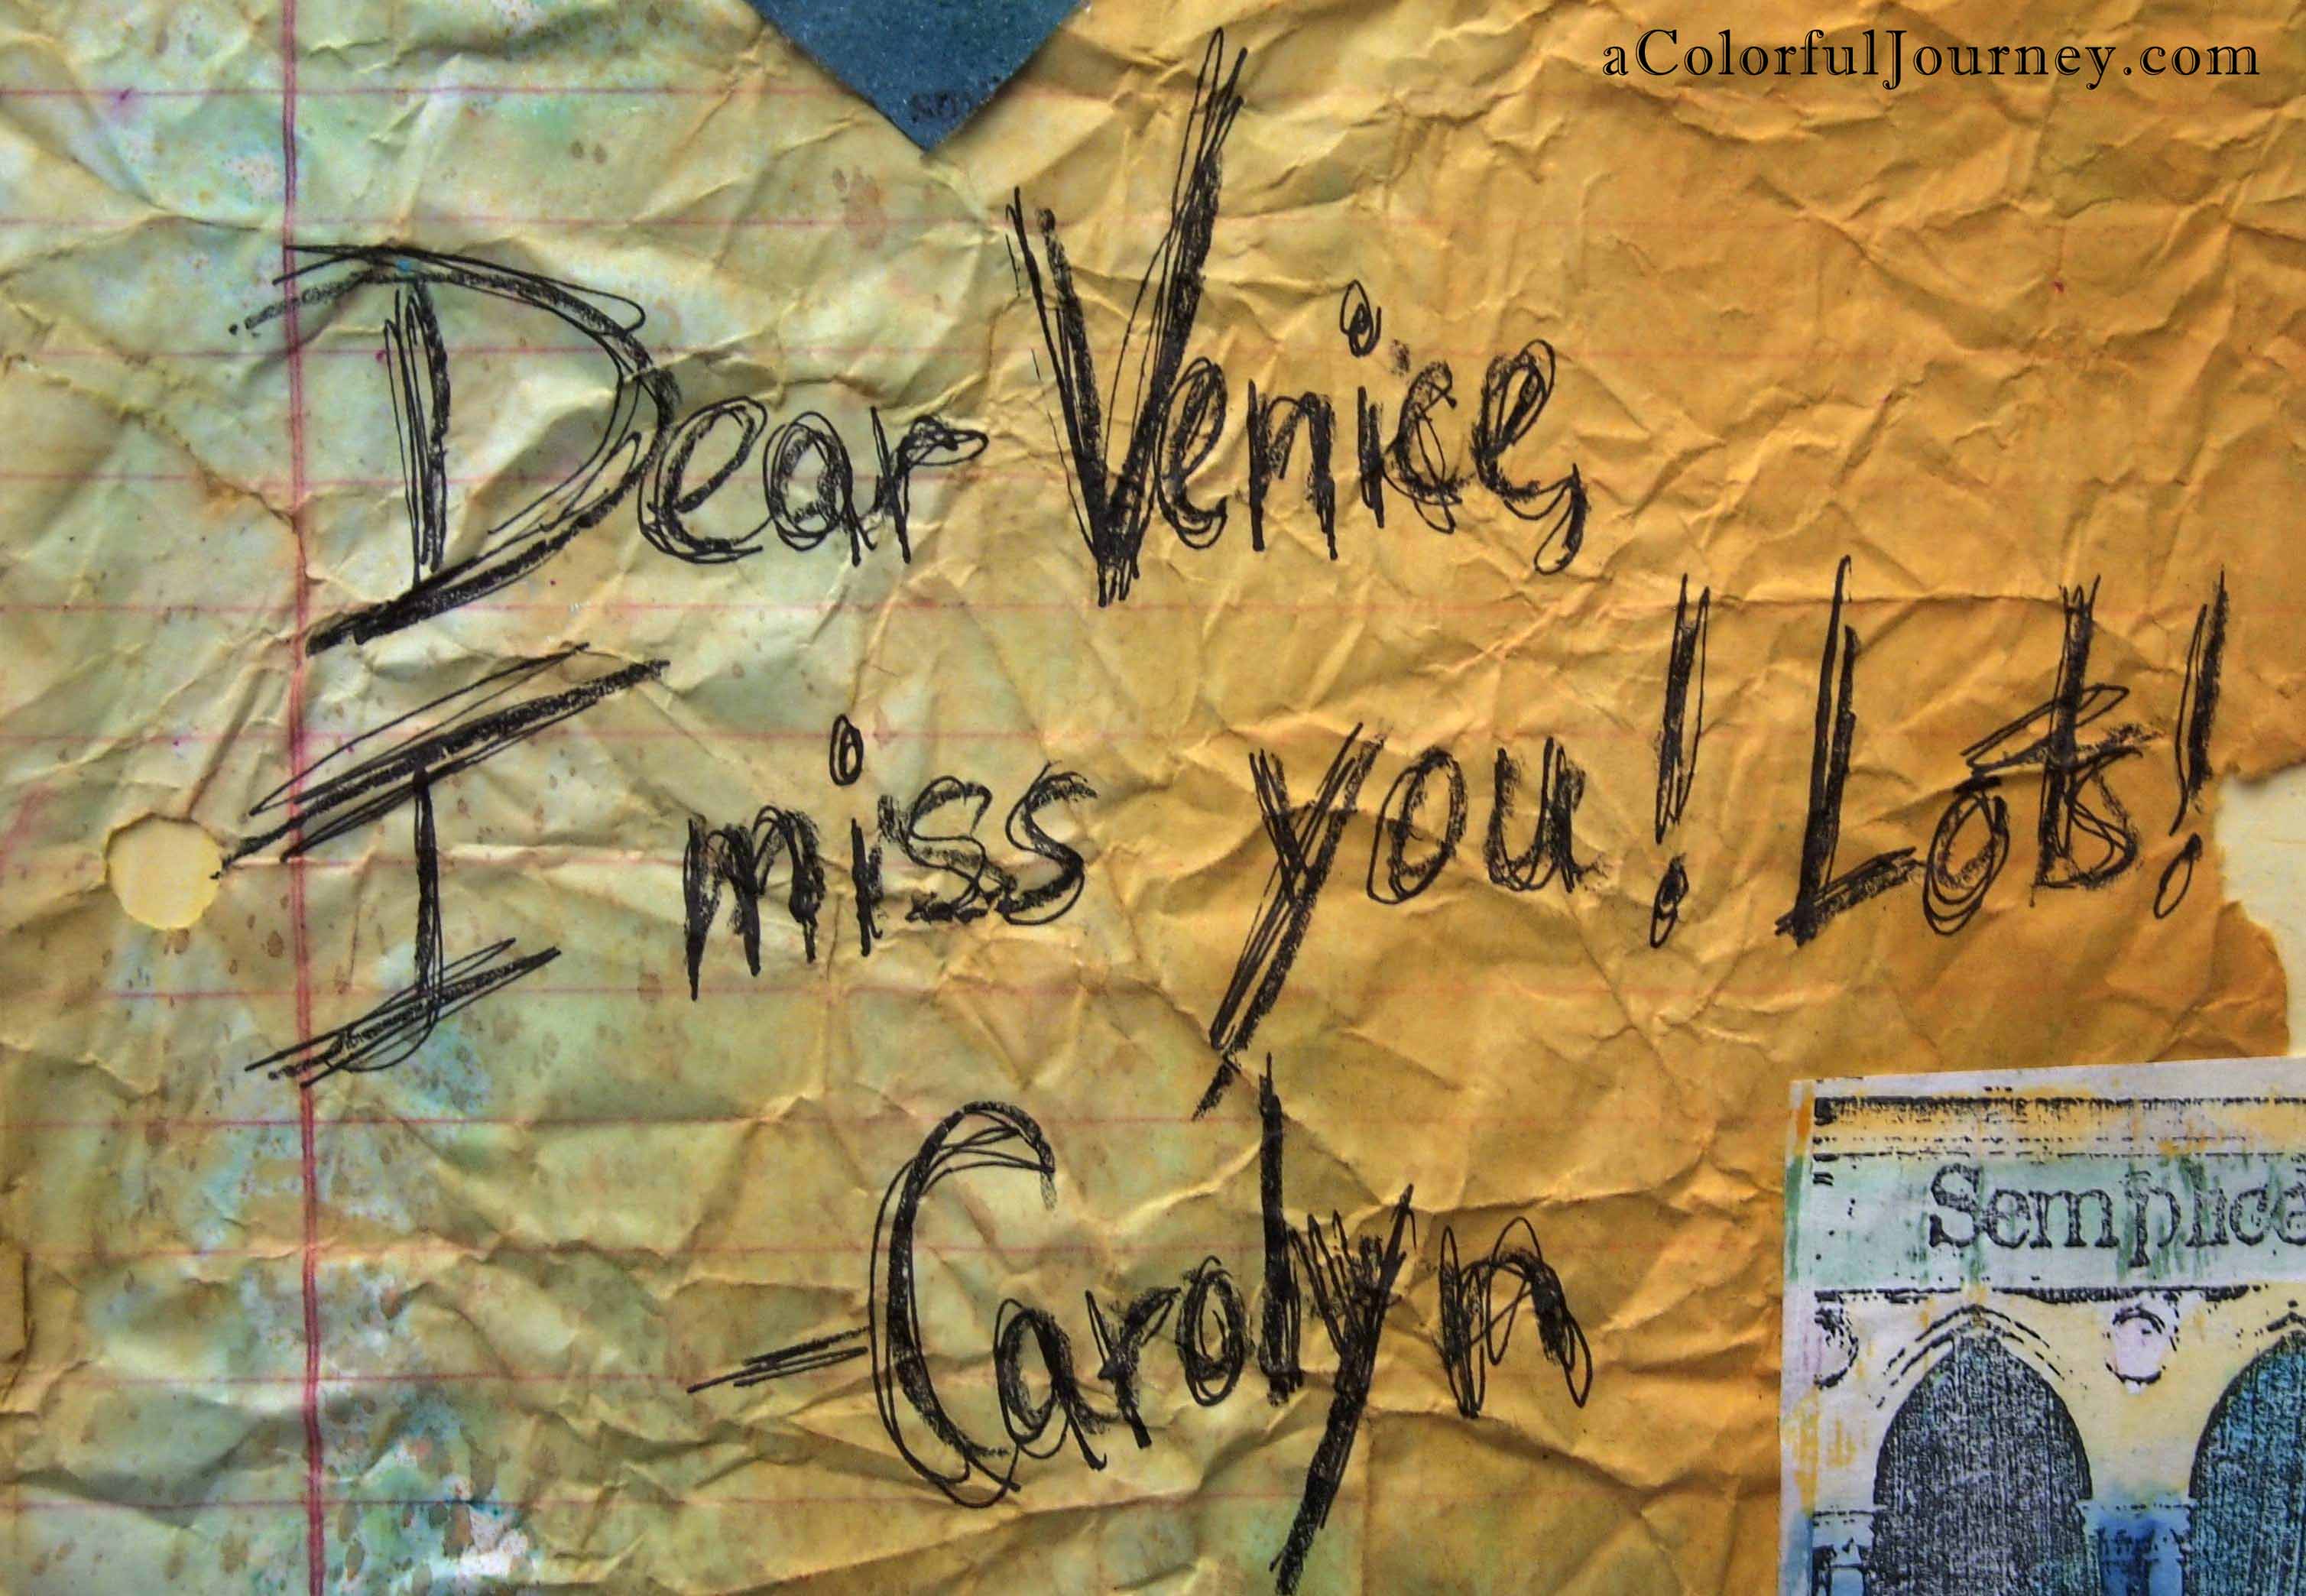 aColorfulJourney.com
Dear Venice,
I miss you! Lots!
-Carolyn